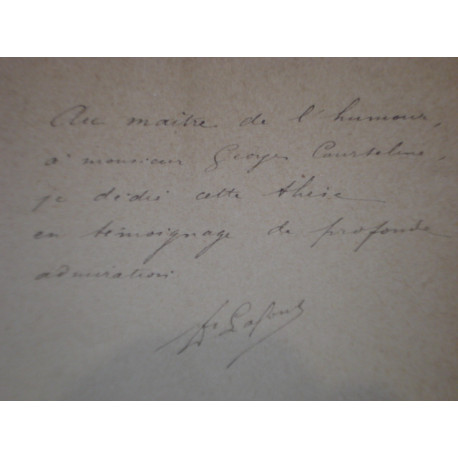 Au maître de l'humour,
à monsieur Georges Courteline,
je dédie cette thèse
en témoignage de profonde
admiration